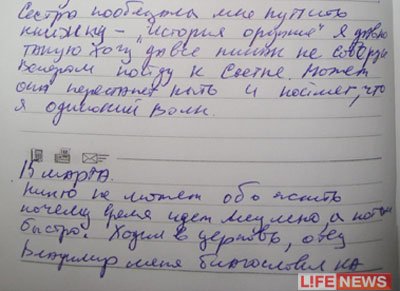 Сестра пообещала мне купить
книжку - „история оружия" Я давно
такую хочу да все никак не соберусь
Вечером пойду к Светке. Может
она перестанет ныть и поймет, что
я одинокий волк.
15 марта.
Никто не может объяснить
почему время идет медленно, а потом
быстро. Ходил в церковь, отец
Владимир меня благословил на
LIFE NEWS